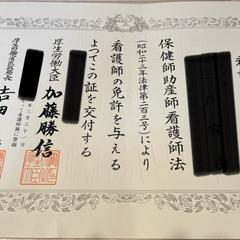 保健師助産師看護師法
(昭和二十三年法律第二百三号)により
看護師の免許を与える
よつてこの証を交付する
月三十一日
厚生労働大臣 加藤勝信
厚生労働省医政局長 吉田